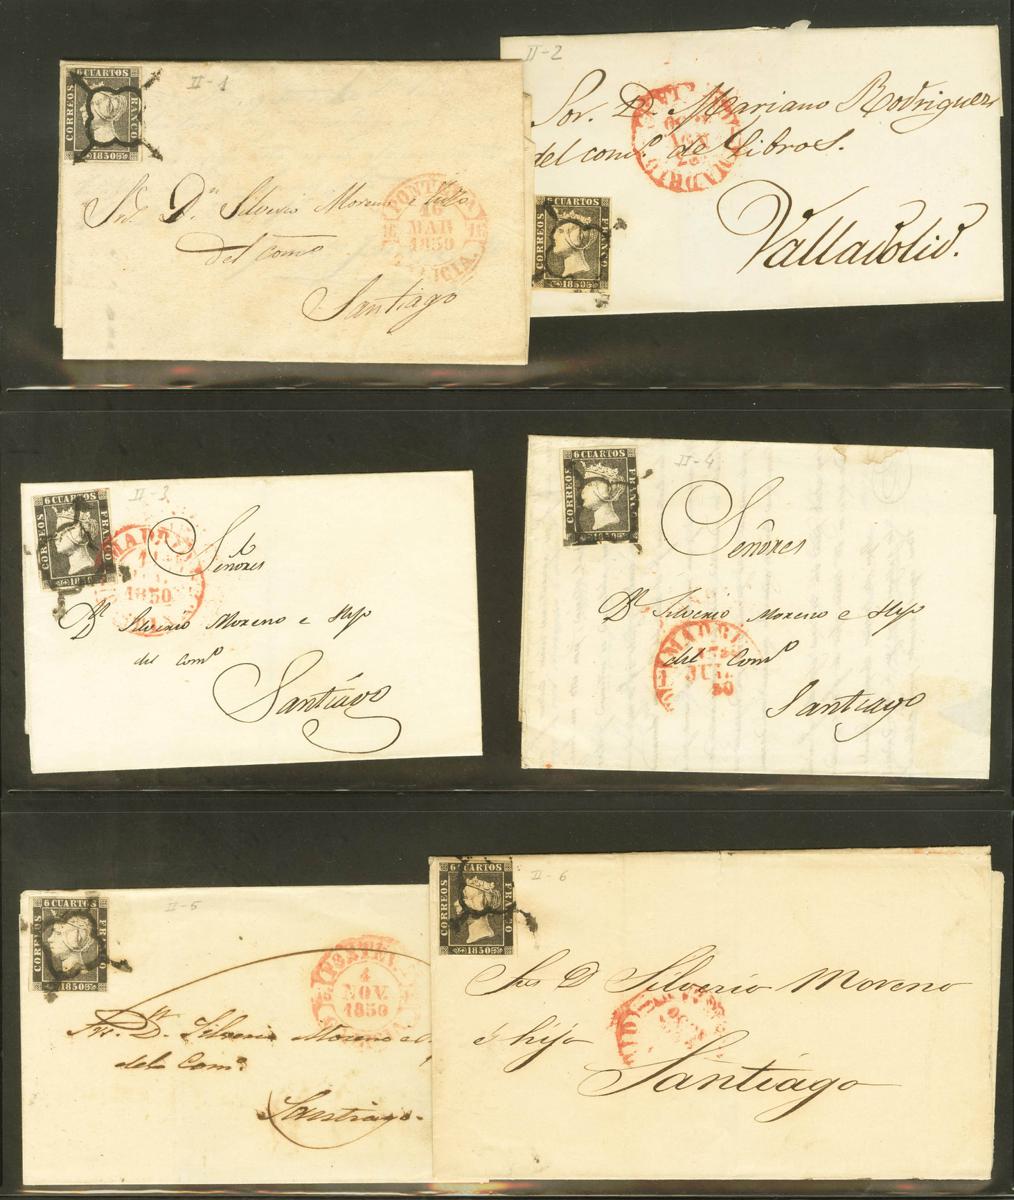 6 CUARTOS
CORREOS
FRANCO
1850
II-1
Sres. Dn. Silverio Moreno e hijo
del como
Santiago
16
MAR
1850
GALICIA.
II-2
Sor. D. Mariano Rodriguez
del como. de Libros.
Valladolid.
MADRID
6 CUARTOS
CORREOS
FRANCO
1850
6 CUARTOS
CORREOS
FRANCO
1850
II-3
Señores
Dn. Silverio Moreno e Hijo
del Como
Santiago
MADRID
1850
6 CUARTOS
CORREOS
FRANCO
1850
II-4
Señores
Dn. Silverio Moreno e Hijo
del Como
Santiago
MADRID
50
6 CUARTOS
CORREOS
FRANCO
1850
II-5
4
NOV.
1850
Sres. Dn. Silverio Moreno e
del Como.
Santiago.
6 CUARTOS
CORREOS
FRANCO
1850
II-6
Sres D Silverio Moreno
e hijo
Santiago